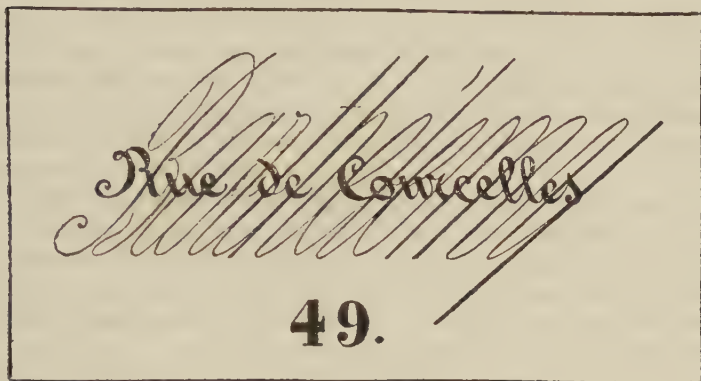 Rue de Courcelles
49.